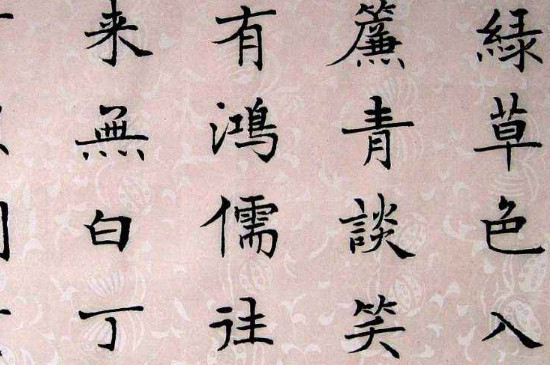 緑草色入
簾青談笑
有鴻儒往
来無白丁